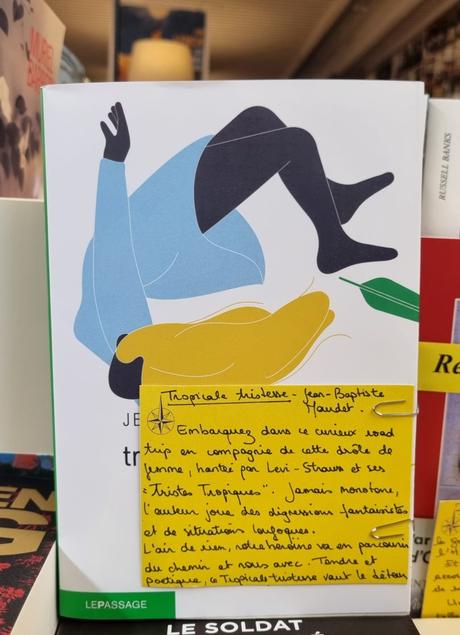 MURIEL
BARB
RUSSELL BANKS
Re
JE
tr
Tropicale tristesse - Jean-Baptiste
Maudet.
Embarquez dans ce curieux road
trip en compagnie de cette drôle de
femme, hantée par Levi-Strauss et ses
"Tristes Tropiques". Jamais monotone,
l'auteur joue des digressions fantaisistes
et de situations loufoques.
L'air de rien, notre héroïne va en parcourir
du chemin et nous avec. Tendre et
poétique, ce Tropicale tristesse vaut le détour
LEPASSAGE
LE SOLDAT
EN
G